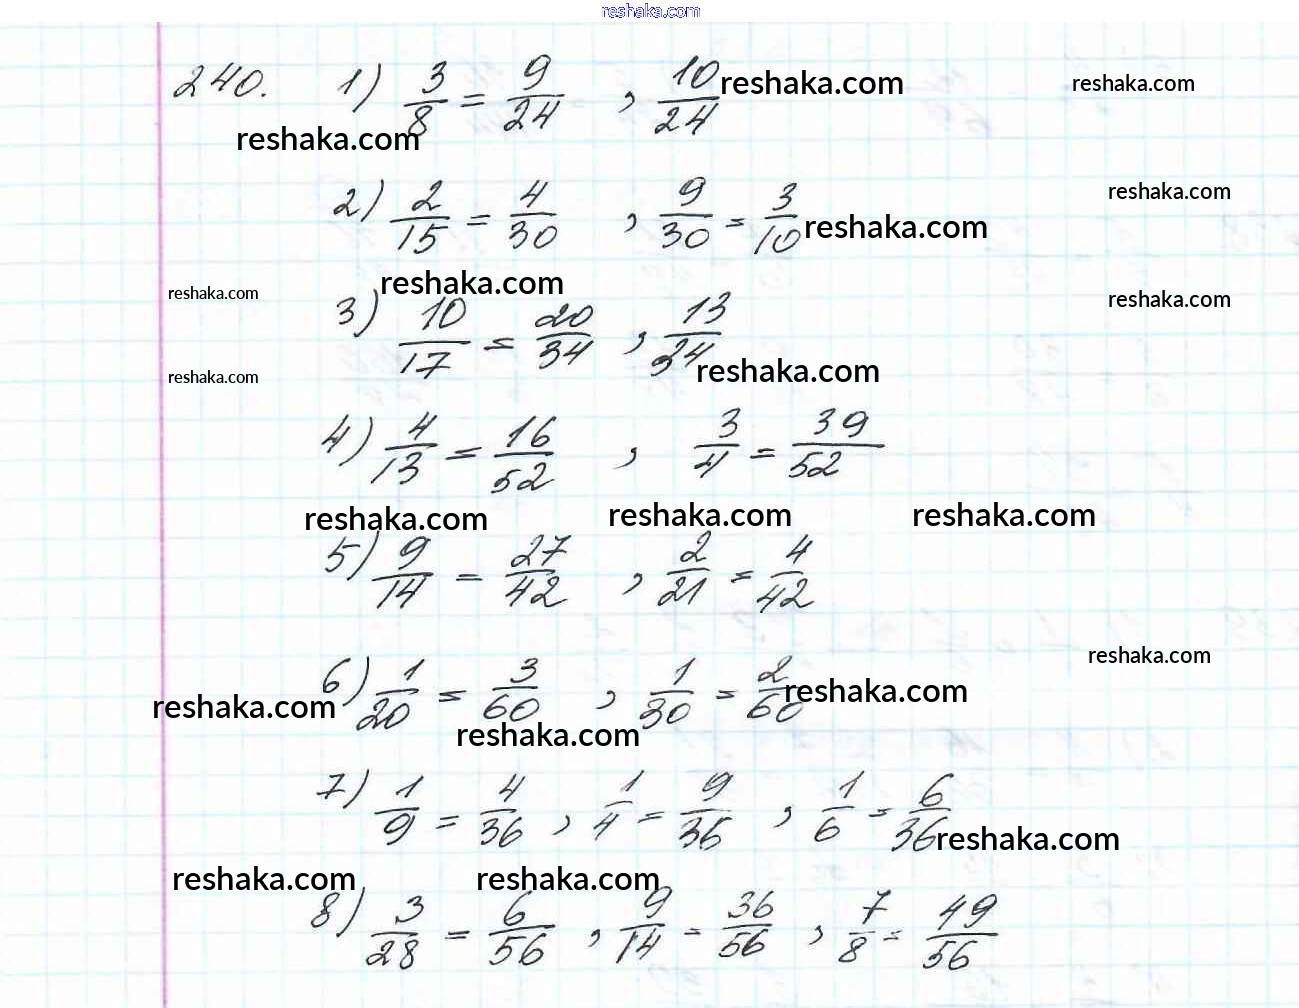 reshaka.com
240. 1) 3/8 = 9/24 , 10/24 reshaka.com reshaka.com
reshaka.com
2) 2/15 = 4/30 , 9/30 = 3/10 reshaka.com reshaka.com
reshaka.com reshaka.com reshaka.com
3) 10/17 = 20/34 , 13/34 reshaka.com
reshaka.com
4) 4/13 = 16/52 , 3/4 = 39/52
reshaka.com reshaka.com reshaka.com
5) 9/14 = 27/42 , 2/21 = 4/42
reshaka.com
6) 1/20 = 3/60 , 1/30 = 2/60 reshaka.com
reshaka.com
reshaka.com
7) 1/9 = 4/36 , 1/4 = 9/36 , 1/6 = 6/36 reshaka.com
reshaka.com reshaka.com
8) 3/28 = 6/56 , 9/14 = 36/56 , 7/8 = 49/56